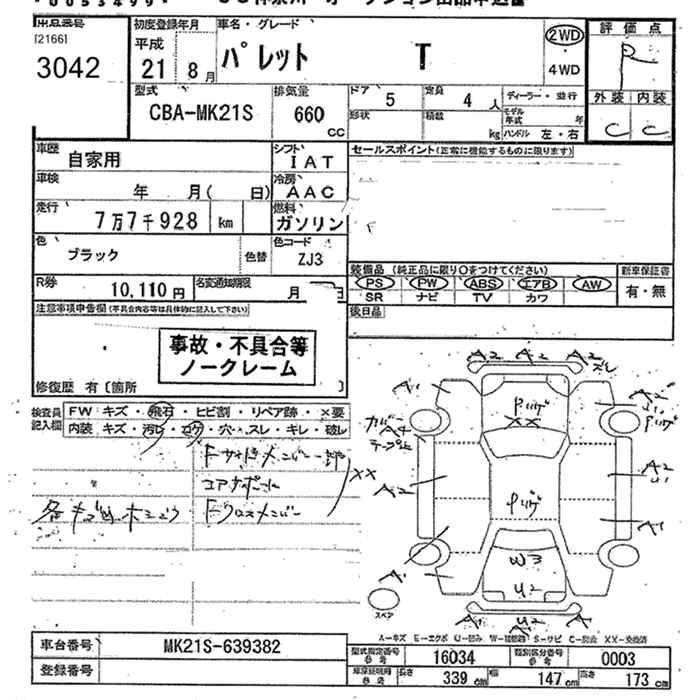 [2166]
3042
初度登録年月
平成
21 8月
車名・グレード
パレット T
2WD
4WD
評価点
R
外装 内装
C C
型式
CBA-MK21S
排気量
660
CC
ドア
5
定員
4人
ディーラー・並行
形状
積載
kg
モデル年式
年
ハンドル 左・右
車歴
自家用
シフト
IAT
セールスポイント(正常に機能するものに限ります)
車検
年 月( 日)
冷房
AAC
走行
7万7千928 km
燃料
ガソリン
色
ブラック
色替
色コード
ZJ3
装備品 (純正品に限り○をつけてください)
新車保証書
PS PW ABS エアB AW
有・無
SR ナビ TV カワ
R券
10,110円
名変通知期限
月 日
後日品
注意事項申告欄(不具合内容等は具体的に記入して下さい)
事故・不具合等
ノークレーム
修復歴 有 [箇所
検査員
記入欄
FW キズ・飛石・ヒビ割・リペア跡・×要
内装 キズ・汚レ・コゲ・穴・スレ・キレ・破レ
コアサポート
Fクロスメンバー
XX
A2 A2 A2
ズレ
A1
Pリペ
XX
A2
U1
カバー
A4
テープ止
A2
A2
U1
A1
W3
U2
A1
A2
スペア
A-キズ E-エクボ U-凹み W-補修跡 S-サビ C-腐食 XX-交換済
車台番号
MK21S-639382
登録番号
型式指定番号
参考
16034
類別区分番号
参考
0003
車庫証明用
参考
長さ
339 cm
幅
147 cm
高さ
173 cm